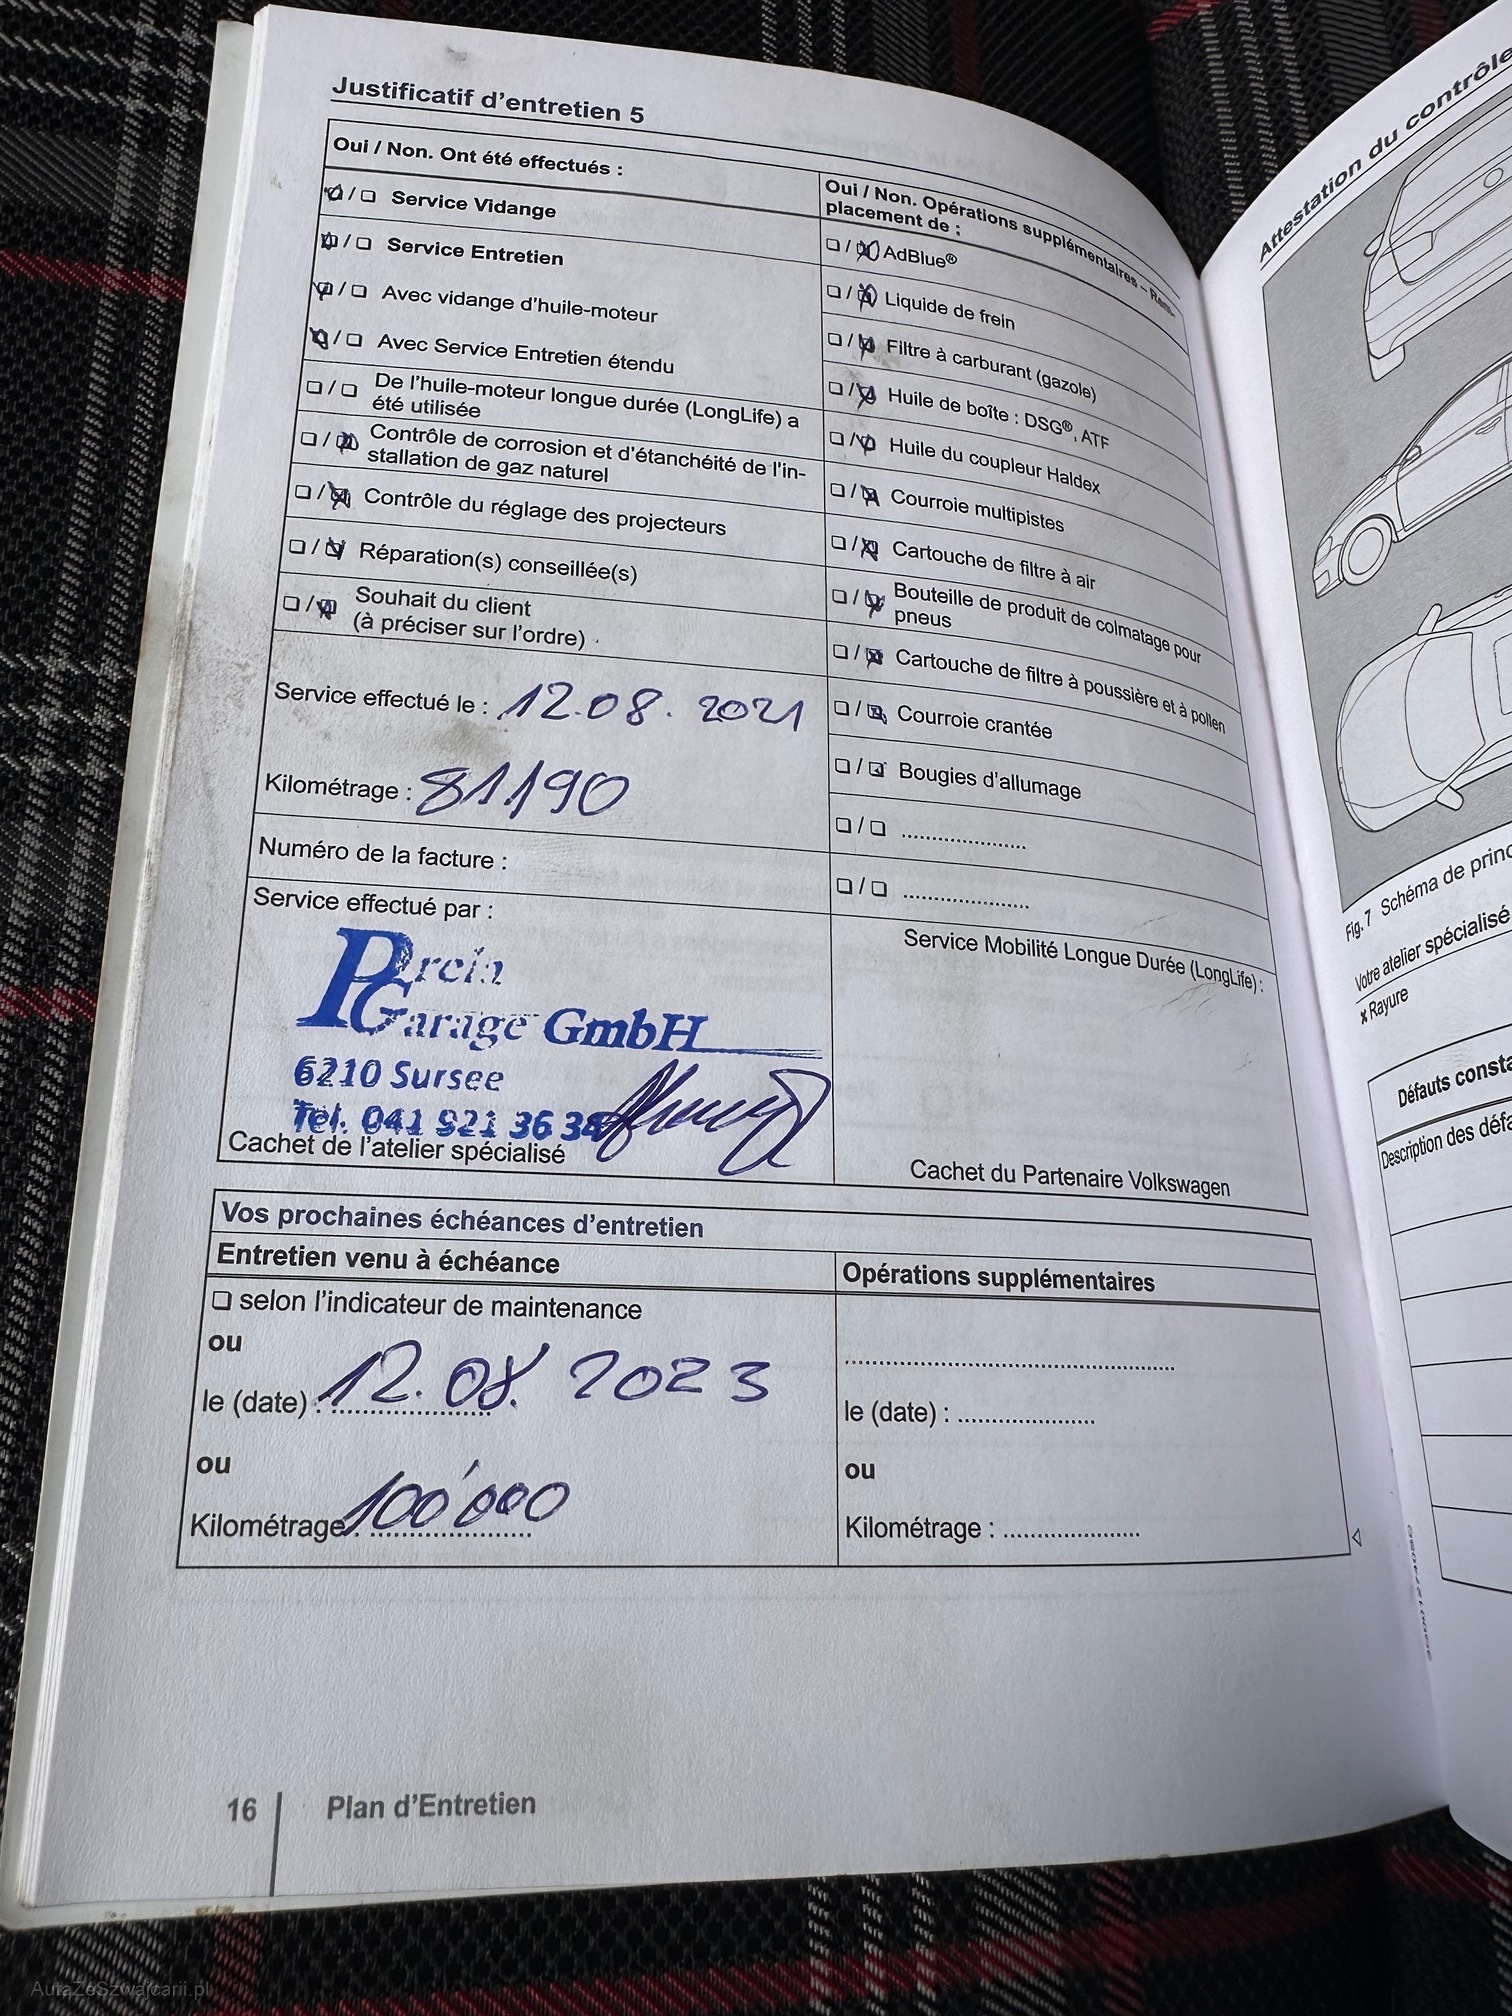 Justificatif d'entretien 5
Oui / Non. Ont été effectués :
❑ / ❑ Service Vidange
❑ / ❑ Service Entretien
❑ / ❑ Avec vidange d'huile-moteur
❑ / ❑ Avec Service Entretien étendu
❑ / ❑ De l'huile-moteur longue durée (LongLife) a
été utilisée
❑ / ❑ Contrôle de corrosion et d'étanchéité de l'in-
stallation de gaz naturel
❑ / ❑ Contrôle du réglage des projecteurs
❑ / ❑ Réparation(s) conseillée(s)
❑ / ❑ Souhait du client
(à préciser sur l'ordre)
Service effectué le : 12.08.2021
Kilométrage : 81190
Numéro de la facture :
Service effectué par :
Garage GmbH
6210 Sursee
Tel. 041 921 36 38
Cachet de l'atelier spécialisé
Oui / Non. Opérations supplémentaires – Rem-
placement de :
❑ / ❑ AdBlue®
❑ / ❑ Liquide de frein
❑ / ❑ Filtre à carburant (gazole)
❑ / ❑ Huile de boîte : DSG®, ATF
❑ / ❑ Huile du coupleur Haldex
❑ / ❑ Courroie multipistes
❑ / ❑ Cartouche de filtre à air
❑ / ❑ Bouteille de produit de colmatage pour
pneus
❑ / ❑ Cartouche de filtre à poussière et à pollen
❑ / ❑ Courroie crantée
❑ / ❑ Bougies d'allumage
❑ / ❑ .....................
❑ / ❑ .....................
Service Mobilité Longue Durée (LongLife) :
Cachet du Partenaire Volkswagen
Vos prochaines échéances d'entretien
Entretien venu à échéance
❑ selon l'indicateur de maintenance
ou
le (date) : 12.08.2023
ou
Kilométrage : 100'000
Opérations supplémentaires
..................................................
le (date) : .....................
ou
Kilométrage : .....................
16 Plan d'Entretien
Attestation du contrôle
Fig. 7 Schéma de princ
Votre atelier spécialisé
× Rayure
Défauts consta
Description des défa
AutaZeSzwajcarii.pl